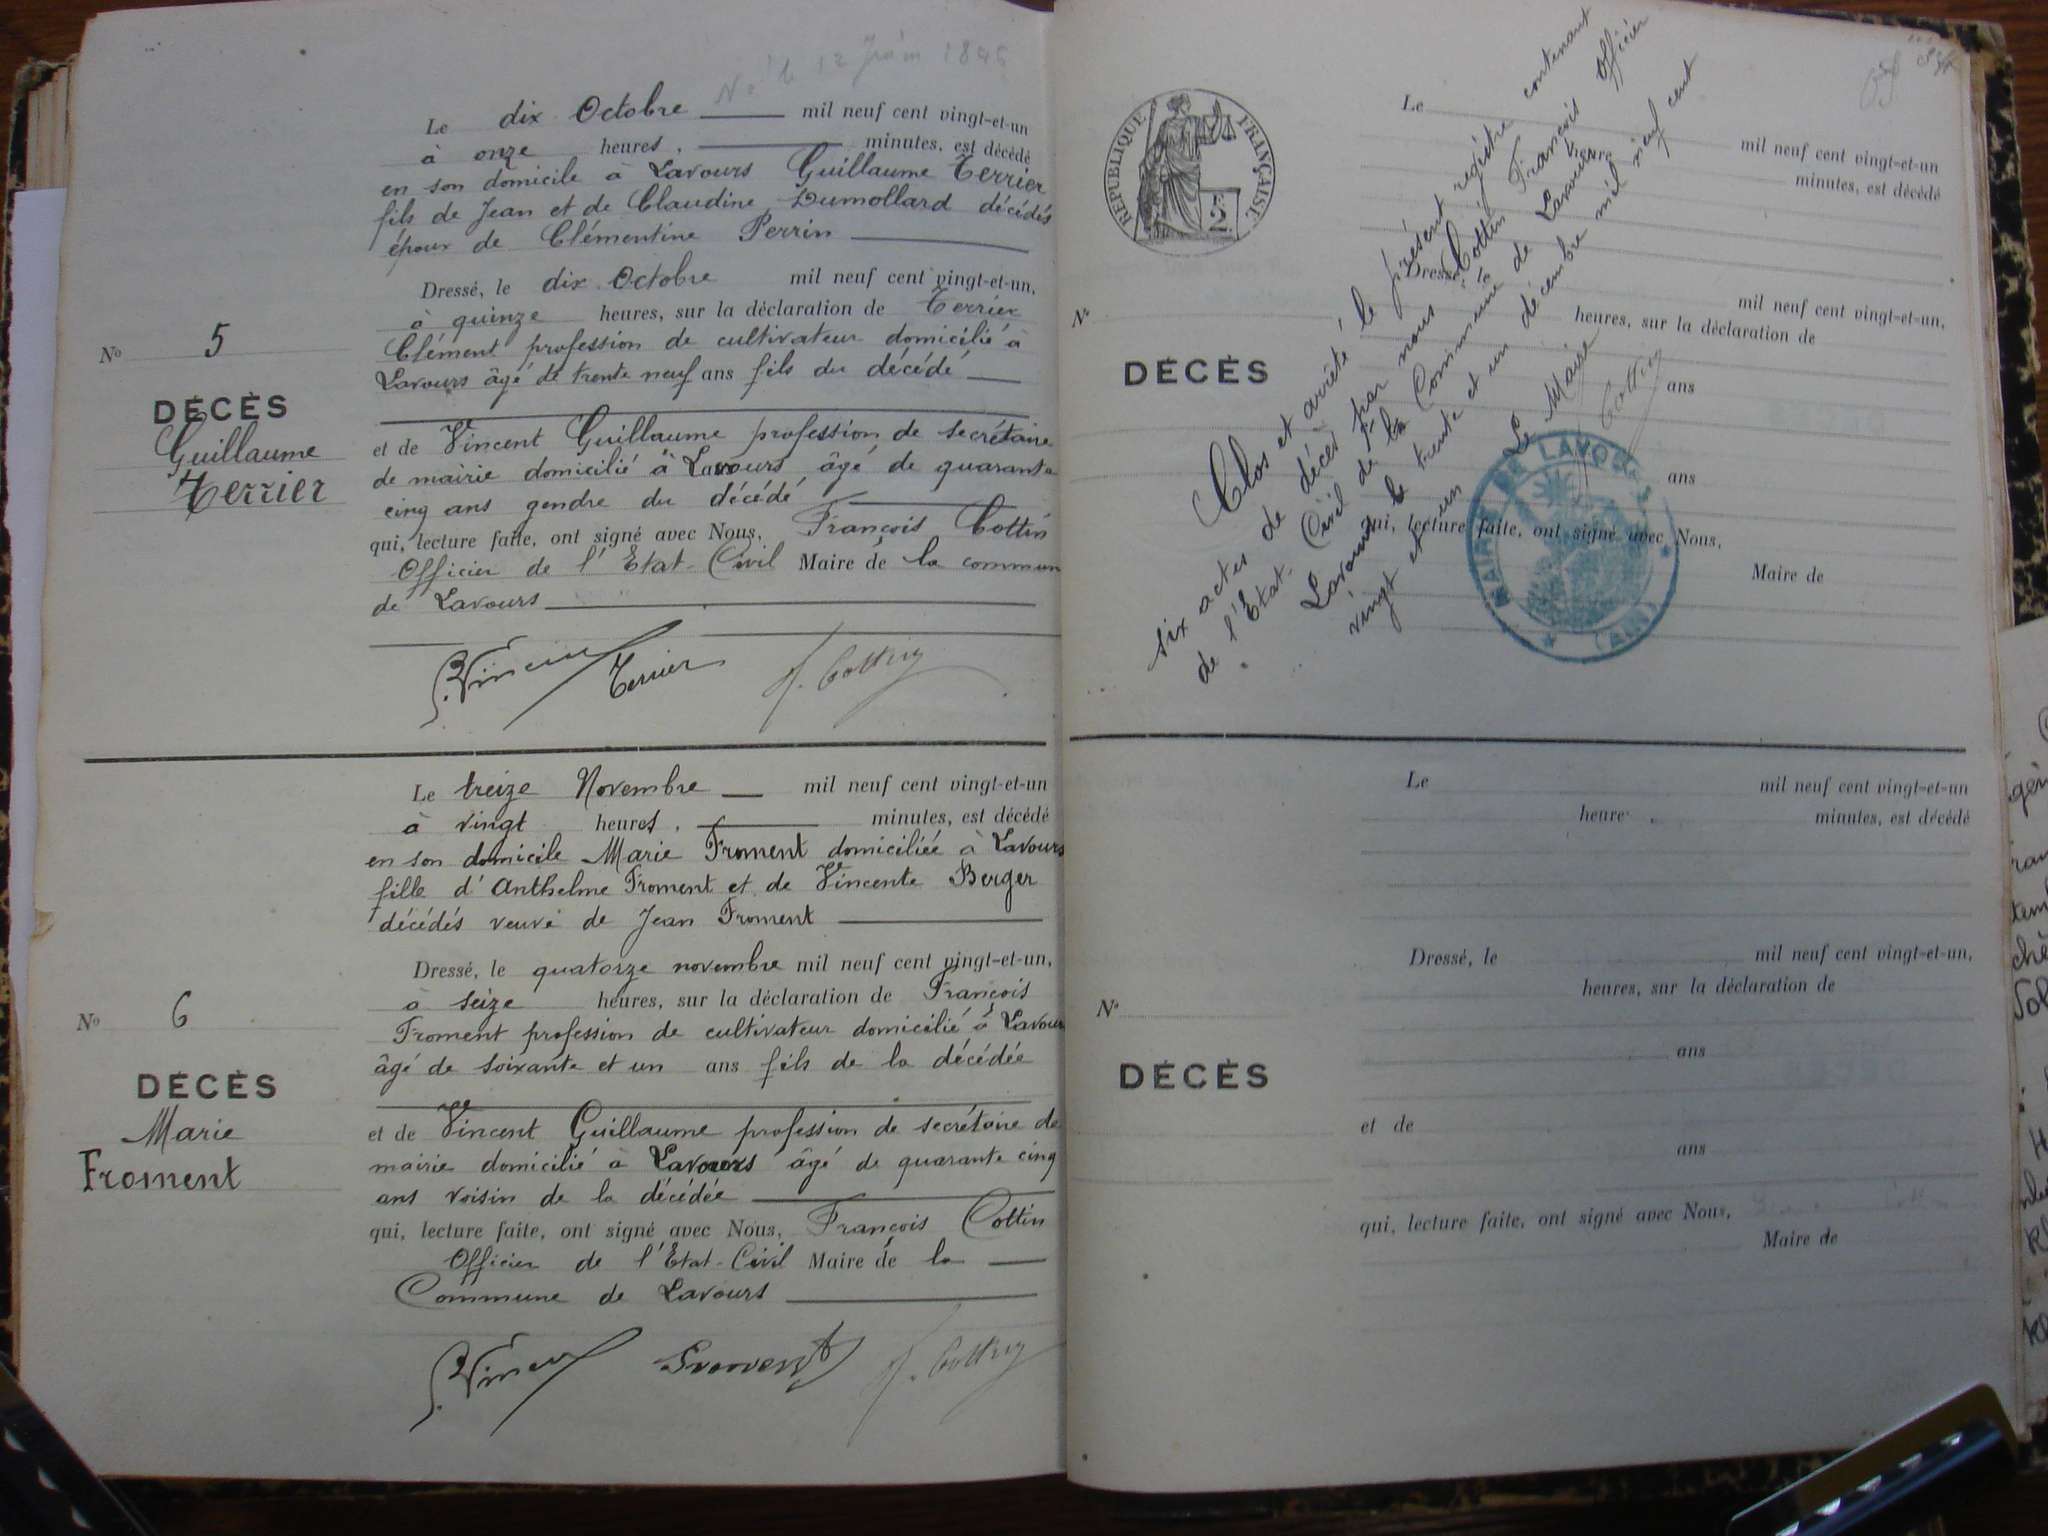 Né le 12 Juin 1846
Le dix Octobre mil neuf cent vingt-et-un
à onze heures, minutes, est décédé
en son domicile à Lavours Guillaume Terrier
fils de Jean et de Claudine Dumollard décédés
époux de Clémentine Perrin
Dressé, le dix Octobre mil neuf cent vingt-et-un,
à quinze heures, sur la déclaration de Terrier
Clément profession de cultivateur domicilié à
Lavours âgé de trente neuf ans fils du décédé
No 5
DÉCÈS
Guillaume
Terrier
et de Vincent Guillaume profession de secrétaire
de mairie domicilié à Lavours âgé de quarante
cinq ans gendre du décédé
qui, lecture faite, ont signé avec Nous, François Cottin
Officier de l'Etat-Civil Maire de la commun
de Lavours
G. Vincent Terrier F. Cottin
Le treize Novembre mil neuf cent vingt-et-un
à vingt heures, minutes, est décédé
en son domicile Marie Froment domiciliée à Lavours
fille d'Anthelme Froment et de Vincente Berger
décédés veuve de Jean Froment
Dressé, le quatorze novembre mil neuf cent vingt-et-un,
à seize heures, sur la déclaration de François
Froment profession de cultivateur domicilié à Lavours
âgé de soixante et un ans fils de la décédée
No 6
DÉCÈS
Marie
Froment
et de Vincent Guillaume profession de secrétaire de
mairie domicilié à Lavours âgé de quarante cinq
ans voisin de la décédée
qui, lecture faite, ont signé avec Nous, François Cottin
Officier de l'Etat-Civil Maire de la
Commune de Lavours
G. Vincent Froment F. Cottin
RÉPUBLIQUE FRANÇAISE
2
Le mil neuf cent vingt-et-un
heure minutes, est décédé
Dressé, le mil neuf cent vingt-et-un,
heures, sur la déclaration de
No
DÉCÈS
ans
ans
qui, lecture faite, ont signé avec Nous,
Maire de
Clos et arrêté le présent registre contenant
six actes de décès par nous Cottin François Officier
de l'Etat-Civil de la Commune de Lavours
Lavours le trente et un décembre mil neuf cent
vingt et un Le Maire
Cottin
MAIRIE DE LAVOURS
(AIN)
Le mil neuf cent vingt-et-un
heure minutes, est décédé
Dressé, le mil neuf cent vingt-et-un,
heures, sur la déclaration de
No
ans
DÉCÈS
et de
ans
qui, lecture faite, ont signé avec Nous,
Maire de